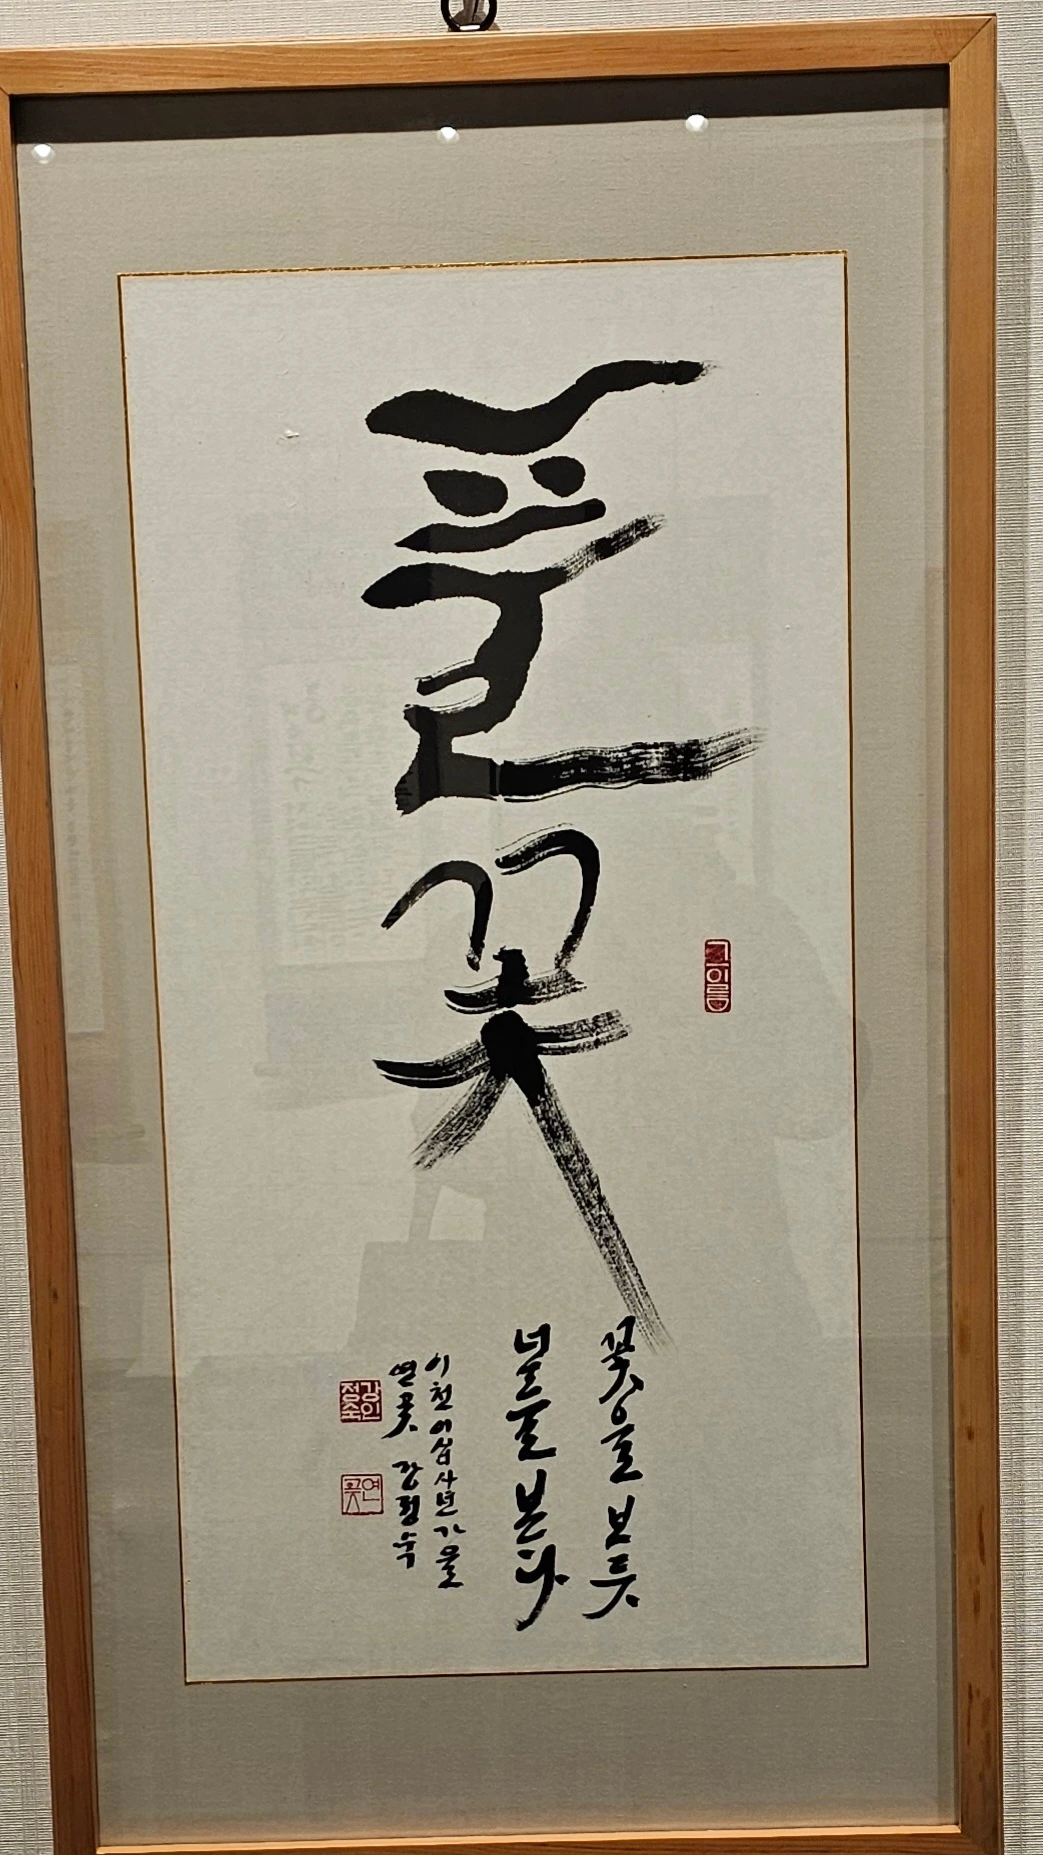 풀꽃
그이름
꽃을 보듯
너를 본다
이천이십사년 가을
연꽃 강정숙
강인
정숙
연꽃